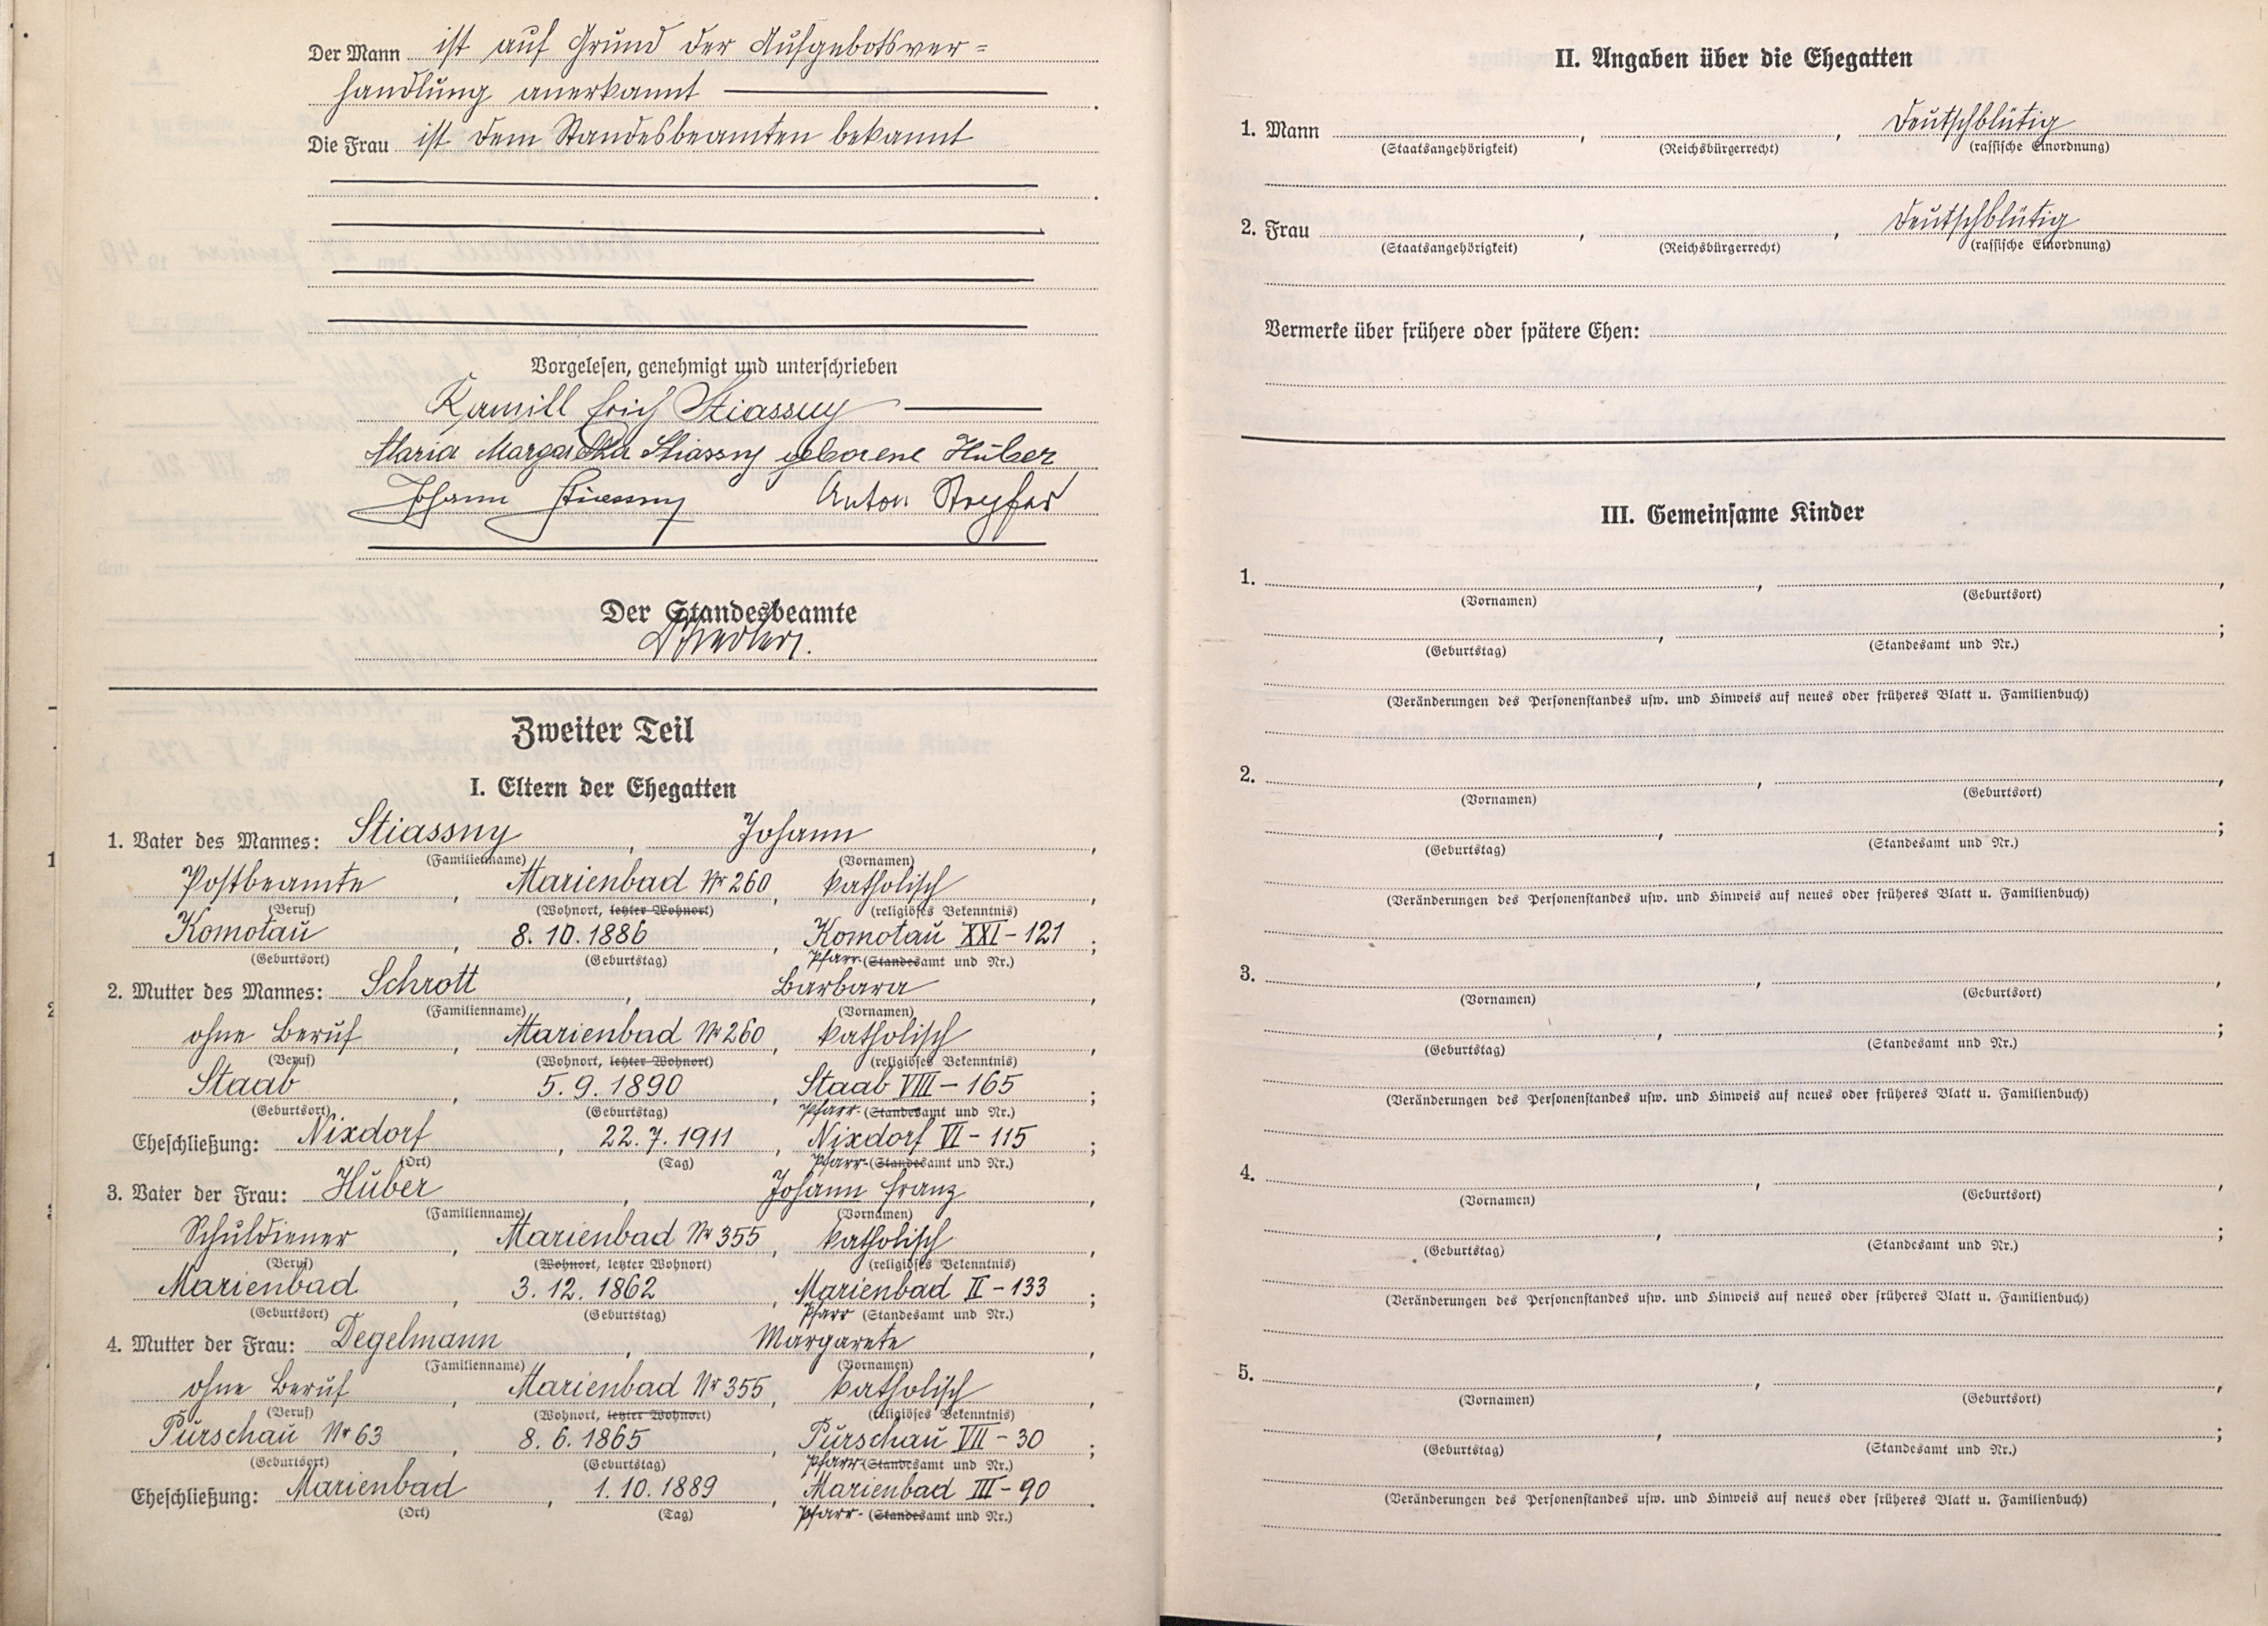 Der Mann ist auf Grund der Aufgebotsver=
handlung anerkannt
Die Frau ist dem Standesbeamten bekannt
Vorgelesen, genehmigt und unterschrieben
Kamill Erich Stiassny
Maria Margaretha Stiassny geborene Huber
Johann Stiassny Anton
Der Standesbeamte
Zweiter Teil
I. Eltern der Ehegatten
1. Vater des Mannes: Stiassny, Johann,
(Familienname) (Vornamen)
Postbeamte, Marienbad Nr 260, katholisch,
(Beruf) (Wohnort, letzter Wohnort) (religiöses Bekenntnis)
Komotau, 8. 10. 1886, Komotau XXI - 121;
(Geburtsort) (Geburtstag) Pfarr-(Standesamt und Nr.)
2. Mutter des Mannes: Schrott, Barbara,
(Familienname) (Vornamen)
ohne Beruf, Marienbad Nr 260, katholisch,
(Beruf) (Wohnort, letzter Wohnort) (religiöses Bekenntnis)
Staab, 5. 9. 1890, Staab VIII - 165;
(Geburtsort) (Geburtstag) Pfarr-(Standesamt und Nr.)
Eheschließung: Nixdorf, 22. 7. 1911, Nixdorf VI - 115;
(Ort) (Tag) Pfarr-(Standesamt und Nr.)
3. Vater der Frau: Huber, Johann Franz,
(Familienname) (Vornamen)
Schuldiener, Marienbad Nr 355, katholisch,
(Beruf) (Wohnort, letzter Wohnort) (religiöses Bekenntnis)
Marienbad, 3. 12. 1862, Marienbad II - 133;
(Geburtsort) (Geburtstag) Pfarr (Standesamt und Nr.)
4. Mutter der Frau: Degelmann, Margarete,
(Familienname) (Vornamen)
ohne Beruf, Marienbad Nr 355, katholisch,
(Beruf) (Wohnort, letzter Wohnort) (religiöses Bekenntnis)
Purschau Nr 63, 8. 6. 1865, Purschau VII - 30;
(Geburtsort) (Geburtstag) Pfarr-(Standesamt und Nr.)
Eheschließung: Marienbad, 1. 10. 1889, Marienbad III - 90.
(Ort) (Tag) Pfarr-(Standesamt und Nr.)
II. Angaben über die Ehegatten
1. Mann , , Deutschblütig
(Staatsangehörigkeit) (Reichsbürgerrecht) (rassische Einordnung)
2. Frau , , Deutschblütig
(Staatsangehörigkeit) (Reichsbürgerrecht) (rassische Einordnung)
Vermerke über frühere oder spätere Ehen:
III. Gemeinsame Kinder
1. , ,
(Vornamen) (Geburtsort)
, ;
(Geburtstag) (Standesamt und Nr.)
(Veränderungen des Personenstandes usw. und Hinweis auf neues oder früheres Blatt u. Familienbuch)
2. , ,
(Vornamen) (Geburtsort)
, ;
(Geburtstag) (Standesamt und Nr.)
(Veränderungen des Personenstandes usw. und Hinweis auf neues oder früheres Blatt u. Familienbuch)
3. , ,
(Vornamen) (Geburtsort)
, ;
(Geburtstag) (Standesamt und Nr.)
(Veränderungen des Personenstandes usw. und Hinweis auf neues oder früheres Blatt u. Familienbuch)
4. , ,
(Vornamen) (Geburtsort)
, ;
(Geburtstag) (Standesamt und Nr.)
(Veränderungen des Personenstandes usw. und Hinweis auf neues oder früheres Blatt u. Familienbuch)
5. , ,
(Vornamen) (Geburtsort)
, ;
(Geburtstag) (Standesamt und Nr.)
(Veränderungen des Personenstandes usw. und Hinweis auf neues oder früheres Blatt u. Familienbuch)